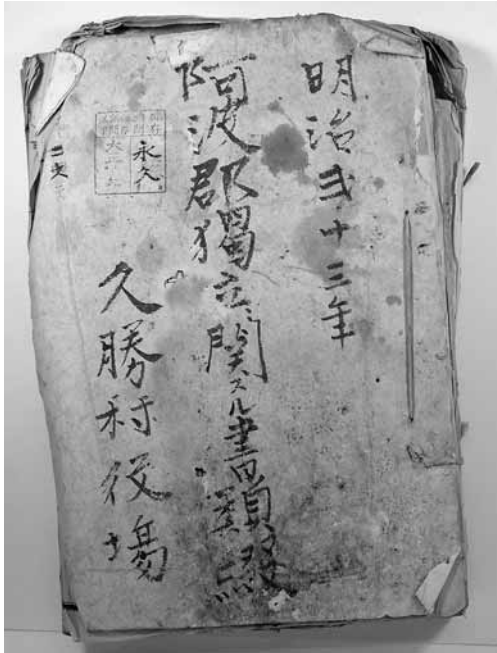 明治弐十三年
阿波郡獨立ニ関スル書類綴
久勝村役場
永久